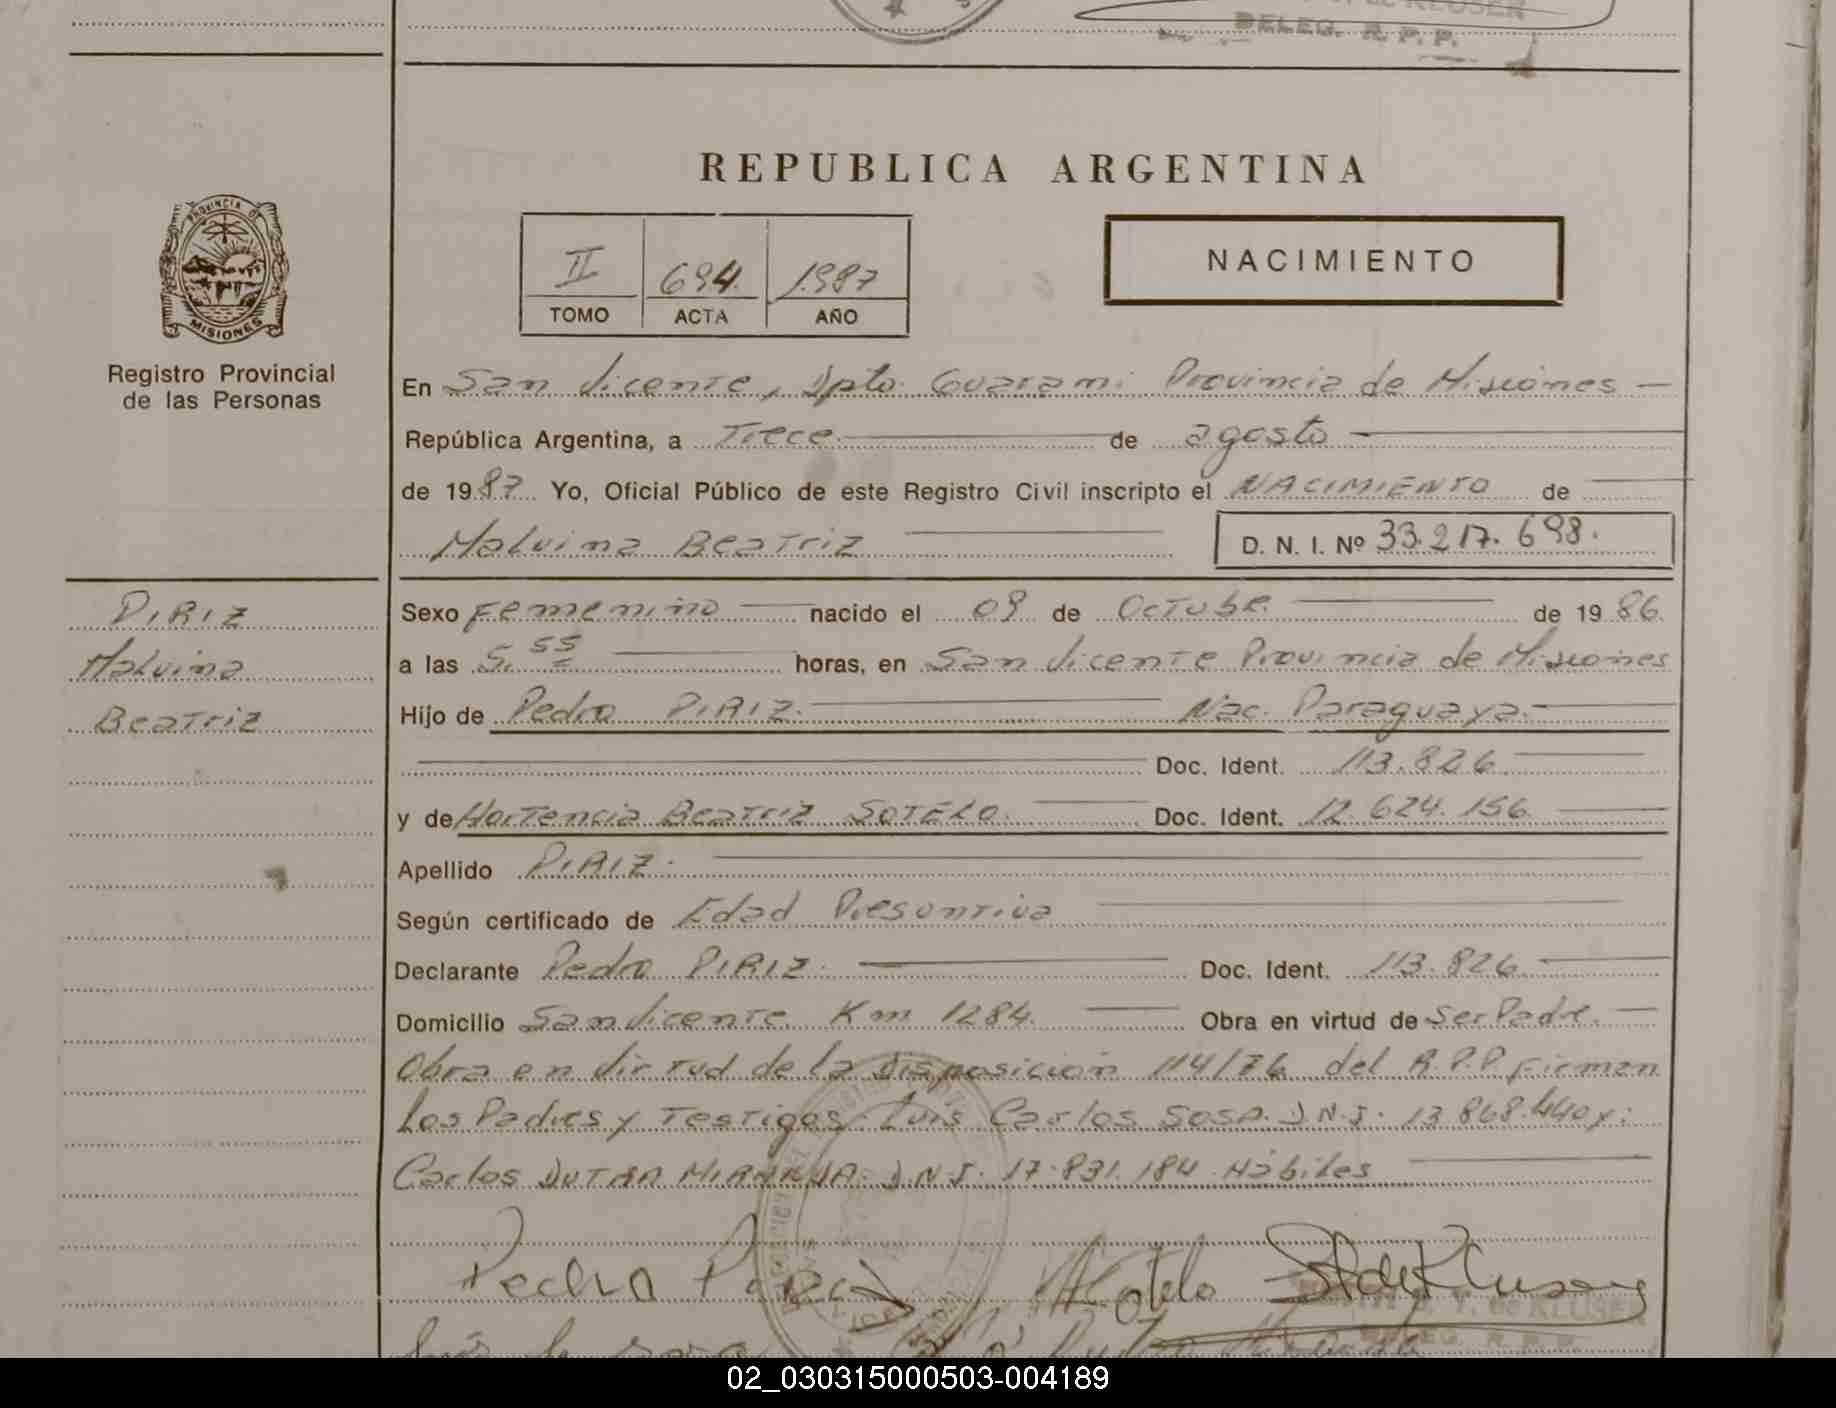 DELEG. R. P. P.
REPUBLICA ARGENTINA
II 694 1987
TOMO ACTA AÑO
NACIMIENTO
PROVINCIA DE
MISIONES
Registro Provincial
de las Personas
En San Vicente, Dpto. Guarani Provincia de Misiones —
República Argentina, a Trece de agosto
de 1987 Yo, Oficial Público de este Registro Civil inscripto el NACIMIENTO de
Malvina Beatriz D. N. I. Nº 33.217.698.
PIRIZ
Malvina
Beatriz
Sexo Femenino nacido el 09 de Octubre de 1986
a las 5.55 horas, en San Vicente Provincia de Misiones
Hijo de Pedro PIRIZ. Nac. Paraguaya.
Doc. Ident. 113.826
y de Hortencia Beatriz SOTELO. Doc. Ident. 12.624.156
Apellido PIRIZ.
Según certificado de Edad Presuntiva
Declarante Pedro PIRIZ. Doc. Ident. 113.826
Domicilio San Vicente Km 1284. Obra en virtud de Ser Padre.
Obra en virtud de la Disposición 114/76 del R.P.P Firman
Los Padres y Testigos. Luis Carlos SOSA. D.N.I. 13.868.440 y:
Carlos DUTRA MIRANDA. D.N.I. 17.831.184 Hábiles
Pedro
DELEG. R. P. P.
02_030315000503-004189